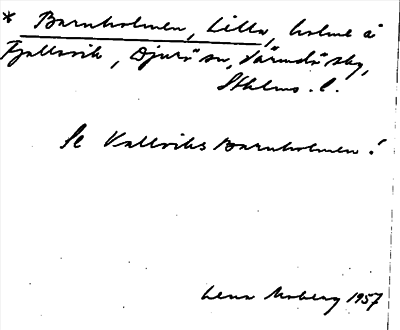 * Barnholmen, Lilla, holme å
Fjällsvik, Djurö sn, Värmdö skg,
Sthlms l.
Se Vallviks Barnholmen!
Lena Moberg 1957